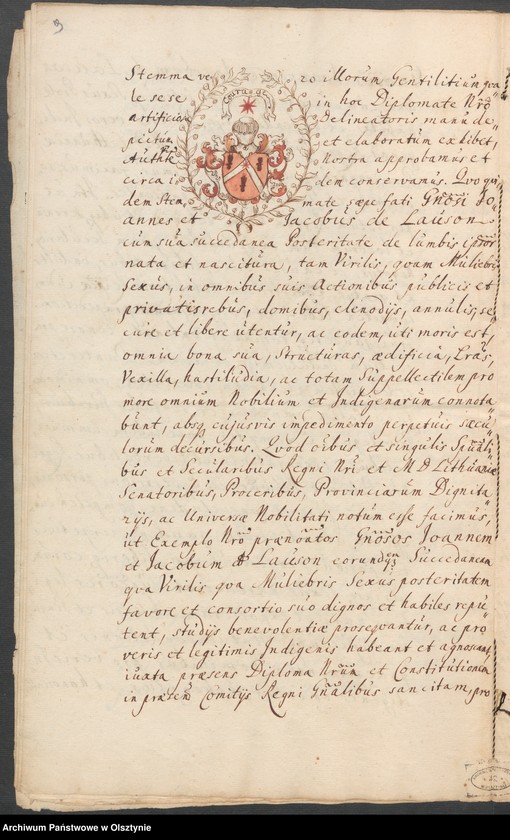 3
Stemma ve ro illorum Gentilitium qva
le sese in hoc Diplomate Nrō
artificiose delineatoris manu de
pictum et elaboratum exhibet,
Auth Nostra approbamus et
circa i dem conservamus. Qvo qvi
dem Stem mate sæpe fati Gnōsi Jo
annes et Jacobus de Lauson
cum sua succedanea Posteritate de lumbis ipsor
nata et nascitura, tam Virilis, qvam Muliebris
Sexus, in omnibus suis Actionibus publicis et
privatis rebus, domibus, clenodijs, annulis, se
cure et libere utentur, ac eodem, uti moris est,
omnia bona sua, Structuras, ædificia, Æra,
Vexilla, hastiludia, ac totam Suppellectilem pro
more omnium Nobilium et Indigenarum connota
bunt, absq, cujusvis impedimento perpetuis sæcu
lorum decursibus. Qvod oībus et singulis Spūali
bus et Secularibus Regni Nri et M D Lithuaniæ
Senatoribus, Proceribus, Provinciarum Dignita
rijs, ac Universæ Nobilitati notum esse facimus,
ut Exemplo Nrō prænoātos Gnōsos Joannem
et Jacobum de Lauson eorundq Succedaneam
qva Virilis qva Muliebris Sexus posteritatem
favore et consortio suo dignos et habiles repu
tent, studijs benevolentiæ proseqvantur, ac pro
veris et legitimis Indigenis habeant et agnoscant
iuxta præsens Diploma Nrūm et Constitutionem
in præsen Comitijs Regni Gnālibus sancitam, pro
Archiwum Państwowe w Olsztynie